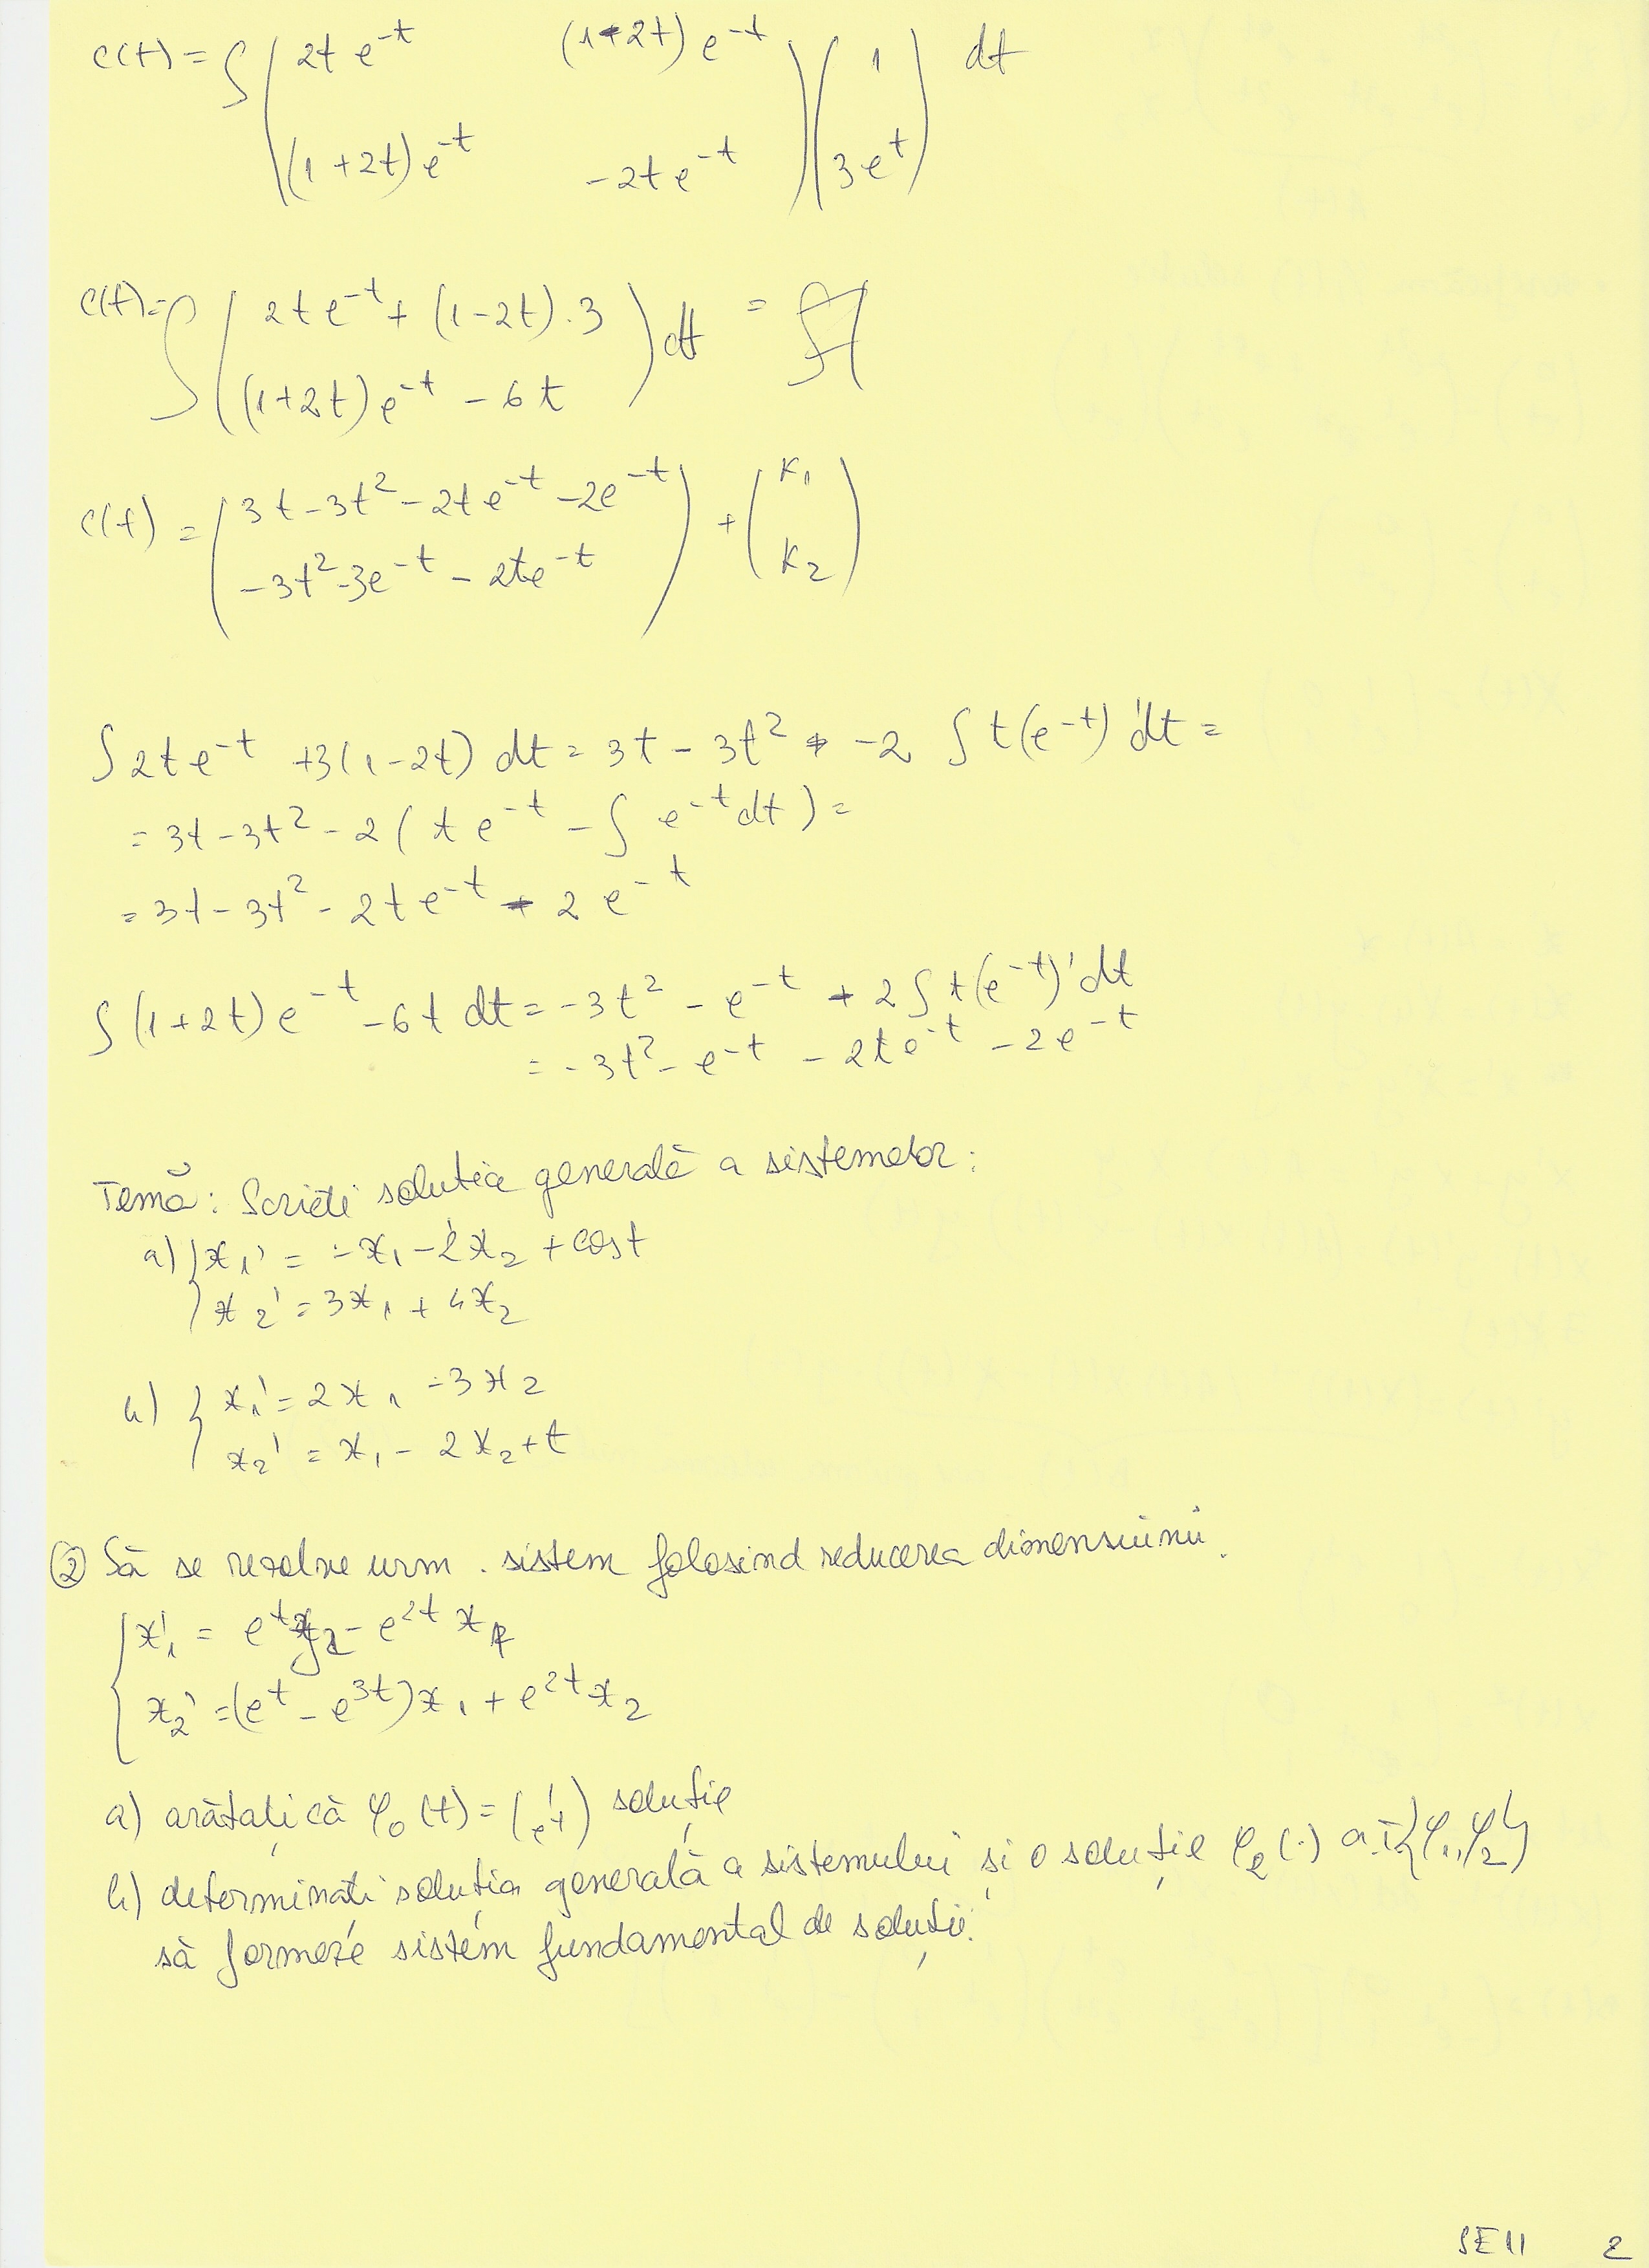 c(t) = ∫ ( 2t e^{-t}   (1-2t) e^{-t} ) ( 1 ) dt
( (1+2t) e^{-t}   -2t e^{-t} ) ( 3e^t )
c(t) = ∫ ( 2t e^{-t} + (1-2t)·3 ) dt =
( (1+2t) e^{-t} - 6t )
c(t) = ( 3t - 3t^2 - 2t e^{-t} - 2e^{-t} ) + ( K_1 )
( -3t^2 - 3e^{-t} - 2te^{-t} ) ( K_2 )
∫ 2t e^{-t} + 3(1-2t) dt = 3t - 3t^2 -2 ∫ t(e^{-t})' dt =
= 3t - 3t^2 - 2 ( t e^{-t} - ∫ e^{-t} dt ) =
= 3t - 3t^2 - 2t e^{-t} - 2 e^{-t}
∫ (1+2t) e^{-t} - 6t dt = -3t^2 - e^{-t} + 2 ∫ t(e^{-t})' dt
= -3t^2 - e^{-t} - 2t e^{-t} - 2e^{-t}
Temă: Scrieti solutia generală a sistemelor:
a) { x_1' = -x_1 - 2x_2 + cos t
x_2' = 3x_1 + 4x_2
b) { x_1' = 2x_1 - 3x_2
x_2' = x_1 - 2x_2 + t
② Să se rezolve urm. sistem folosind reducerea dimensiunii.
{ x_1' = e^t x_2 - e^{2t} x_1
x_2' = (e^t - e^{3t}) x_1 + e^{2t} x_2
a) arătați că φ_0(t) = ( 1 e^t ) soluție
b) determinați soluția generală a sistemului și o soluție φ_2(·) a.î. {φ_1, φ_2}
să formeze sistem fundamental de soluții.
SE11 2